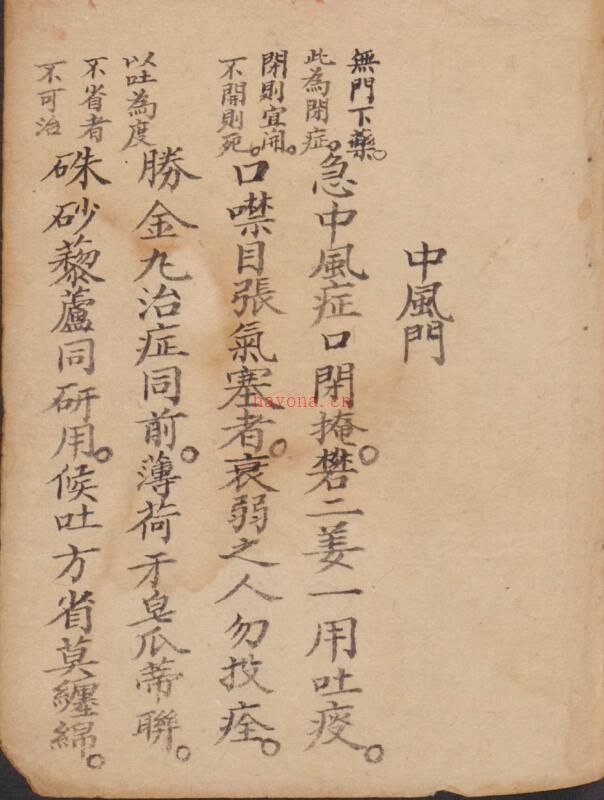 中風門
無門下藥。
此為閉症。
急中風症口閉掩。礬二姜一用吐痰。
閉則宜開。
不開則死。
口噤目張氣塞者。衰弱之人勿投痊。
以吐為度
勝金九治症同前。薄荷牙皂瓜蒂聯。
不省者
不可治
硃砂藜蘆同研用。候吐方省莫纏綿。
nayona.cn